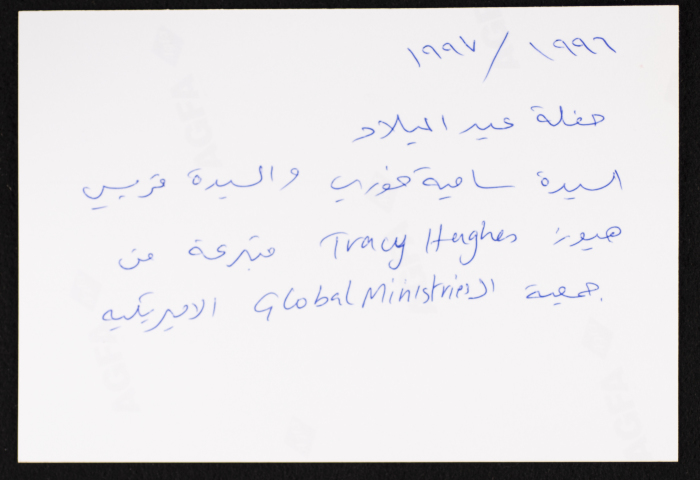 ١٩٩٦ / ١٩٩٧
حفلة عيد الميلاد
السيدة سامية خوري والسيدة تريسي
هيوز Tracy Hughes متبرعة من
جمعية الـ Global Ministries الاميركيه
AGFA
AGFA
AGFA